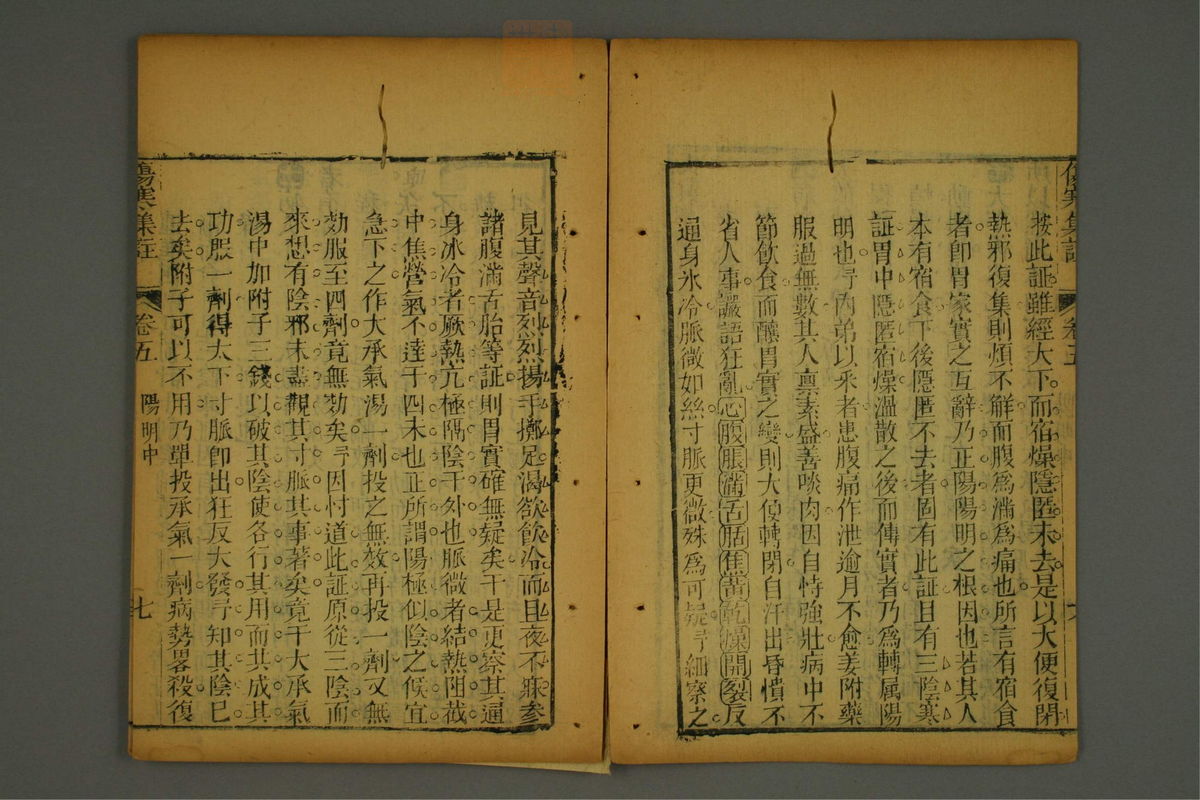 按此証雖經大下而宿燥隱匿未去是以大便復閉
熱邪復集則煩不解而腹為滿為痛也所言有宿食
者卽胃家實之互辭乃正陽陽明之根因也若其人
本有宿食下後隱匿不去者固有此証且有三陰寒
証胃中隱匿宿燥溫散之後而傳實者乃為轉属陽
明也予內弟以采者患腹痛作泄逾月不愈姜附藥
服過無數其人禀素盛善啖肉因自恃強壯病中不
節飲食而釀胃實之變則大便轉閉自汗出昏憒不
省人事譫語狂亂心腹脹滿舌胎焦黃乾燥開裂反
遍身氷冷脈微如絲寸脈更微殊為可疑予細察之
見其聲音烈烈揚手擲足渴欲飲冷而且夜不寐參
諸腹滿舌胎等証則胃實確無疑矣于是更察其遍
身氷冷者厥熱亢極隔陰于外也脈微者結熱阻截
中焦營氣不逹于四末也正所謂陽極似陰之候宜
急下之作大承氣湯一劑投之無效再投一劑又無
効服至四劑竟無効矣予因忖道此証原從三陰而
來想有陰邪未盡觀其寸脈其事著矣竟于大承氣
湯中加附子三錢以破其陰使各行其用而共成其
功服一劑得大下寸脈卽出狂反大發予知其陰已
去矣附子可以不用乃單投承氣一劑病勢畧殺復
傷寒集註
卷五
陽明中
七